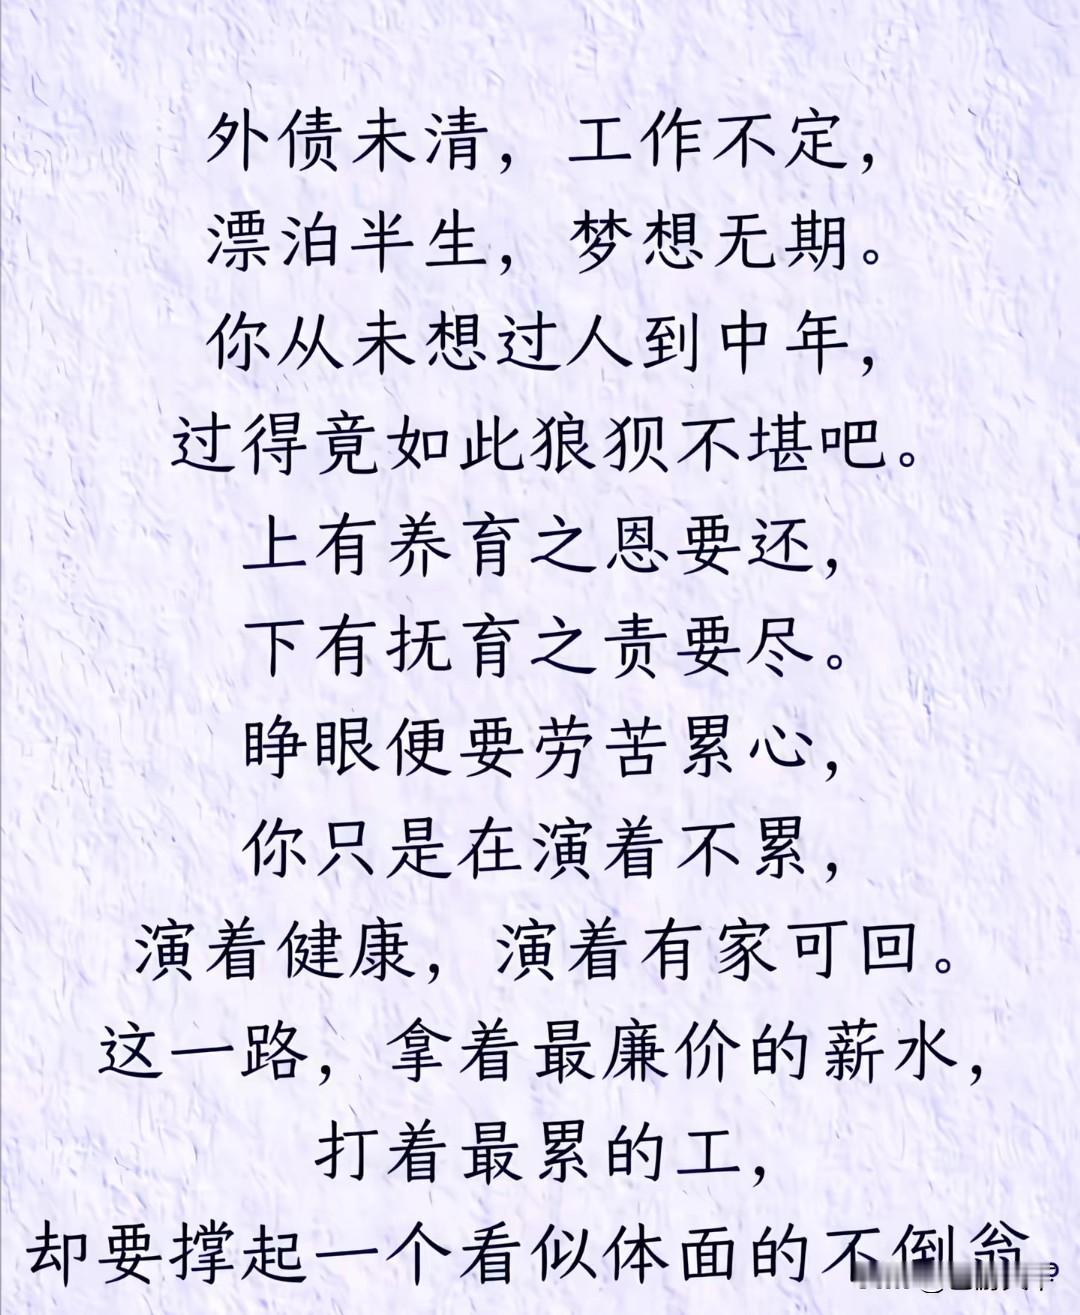 外债未清，工作不定，
漂泊半生，梦想无期。
你从未想过人到中年，
过得竟如此狼狈不堪吧。
上有养育之恩要还，
下有抚育之责要尽。
睁眼便要劳苦累心，
你只是在演着不累，
演着健康，演着有家可回。
这一路，拿着最廉价的薪水，
打着最累的工，
却要撑起一个看似体面的不倒翁